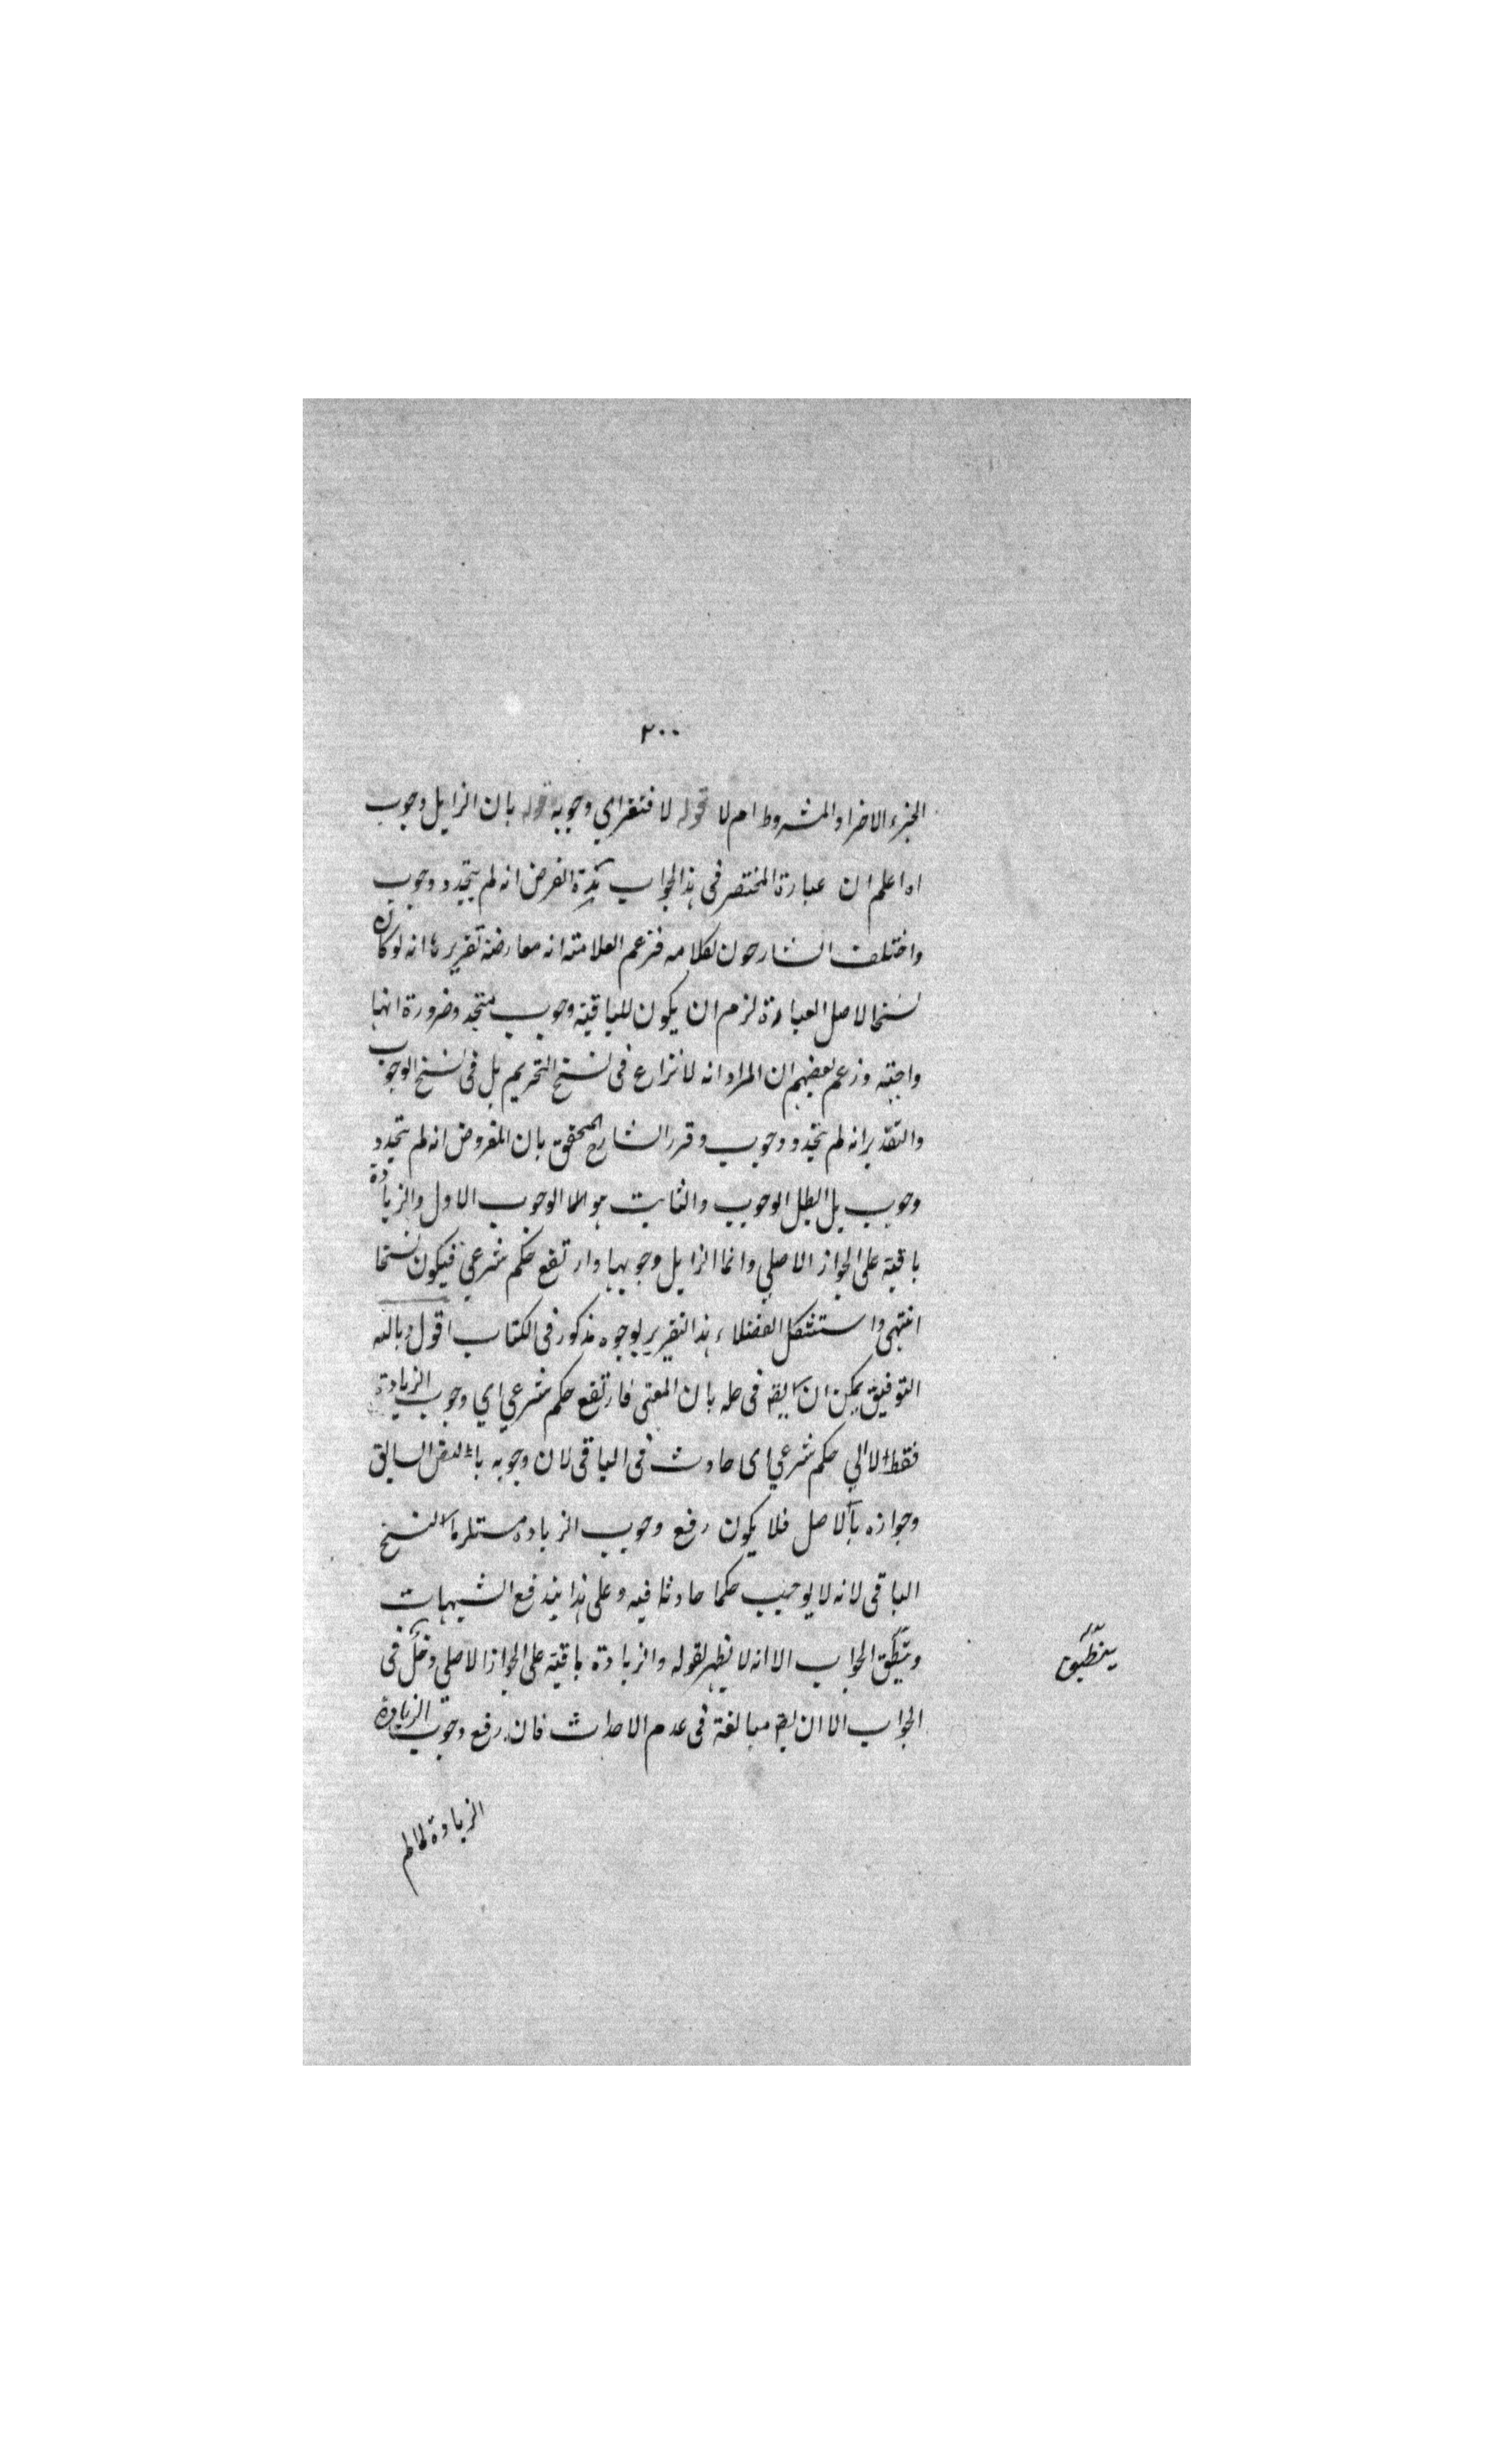 ٢٠٠
الجزء الاخر او المشروط ام لا قوله لا فتقراي وجوبه قوله بان الزايل وجوب
اه اعلم ان عبارة المختصر فى هذا الجواب هكذا الفرض انه لم يتجدد وجوب
واختلف الشارحون لكلامه فزعم العلامة انه معارضة تقريرها انه لو كان
نسخا لاصل العبادة لزم ان يكون للباقية وجوب متجدد ضرورة انها
واجبة وزعم بعضهم ان المراد انه لا نزاع فى نسخ التحريم بل فى نسخ الوجوب
والتقدير انه لم يتجدد وجوب وقرر الشارح المحقق بان المفروض انه لم يتجدد
وجوب بل ابطل الوجوب والثابت هو الوجوب الاول والزيادة
باقية على الجواز الاصلي وانما الزايل وجوبها وارتفع حكم شرعي فيكون نسخا
انتهى واستشكل الفضلاء هذا التقرير بوجوه مذكور فى الكتاب اقول وبالله
التوفيق يمكن ان يقه فى حله بان المعنى فارتفع حكم شرعي اي وجوب الزيادة
فقط لا الي حكم شرعي اى حادث فى الباقى لان وجوبه بالنص السابق
وجوازه بالاصل فلا يكون رفع وجوب الزيادة مستلزما لنسخ
الباقى لانه لا يوجب حكما حادثا فيه وعلى هذا يندفع الشبهات
وينطبق الجواب الا انه لا يظهر لقوله والزيادة باقية على الجواز الاصلي دخل فى
ينطبق
الجواب الا ان يقه مبالغة فى عدم الاحداث فان رفع وجوب الزيادة
الزيادة لما لم